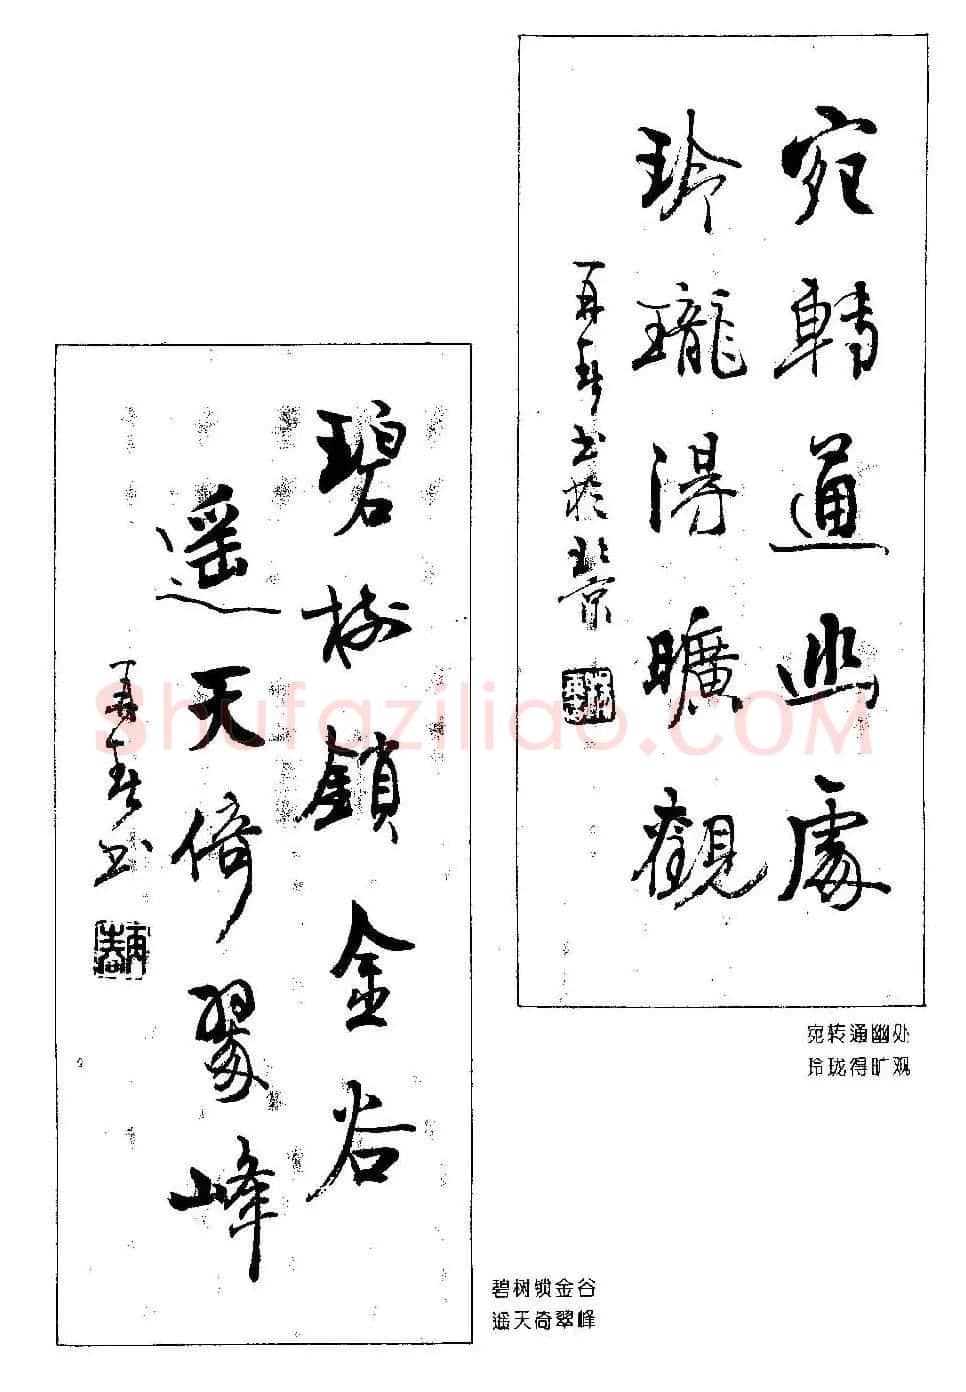 宛轉通幽處
玲瓏得曠觀
再春書於北京
宛转通幽处
玲珑得旷观
碧樹鎖金谷
遥天倚翠峰
再春书
碧树锁金谷
遥天奇翠峰
Shufaziliao.COM